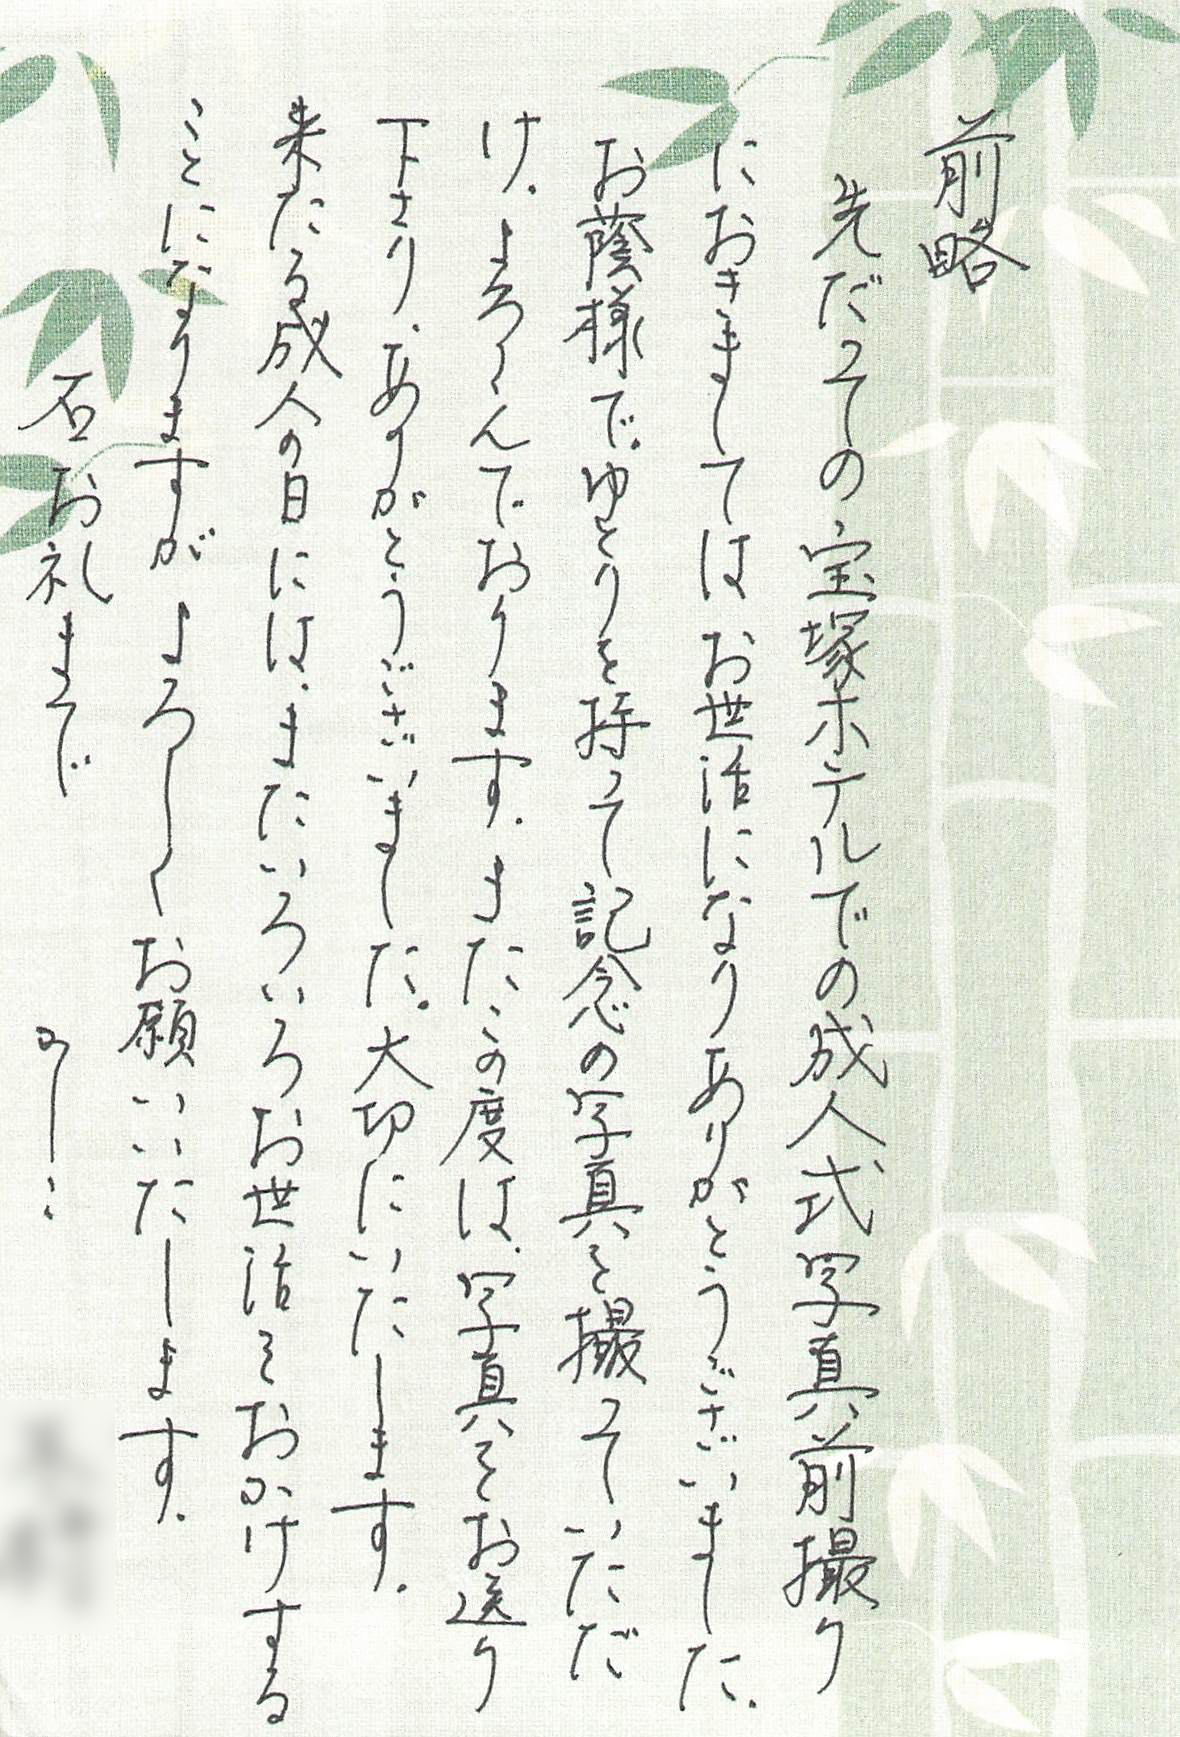 前略
先だっての宝塚ホテルでの成人式写真前撮り
におきましてはお世話になりありがとうございました。
お蔭様で。ゆとりを持って記念の写真を撮っていただ
け、よろこんでおります。またこの度は、写真をお送り
下さり、ありがとうございました。大切にいたします。
来たる成人の日には、またいろいろお世話をおかけする
ことになりますが よろしくお願いいたします。
右お礼まで
かしこ